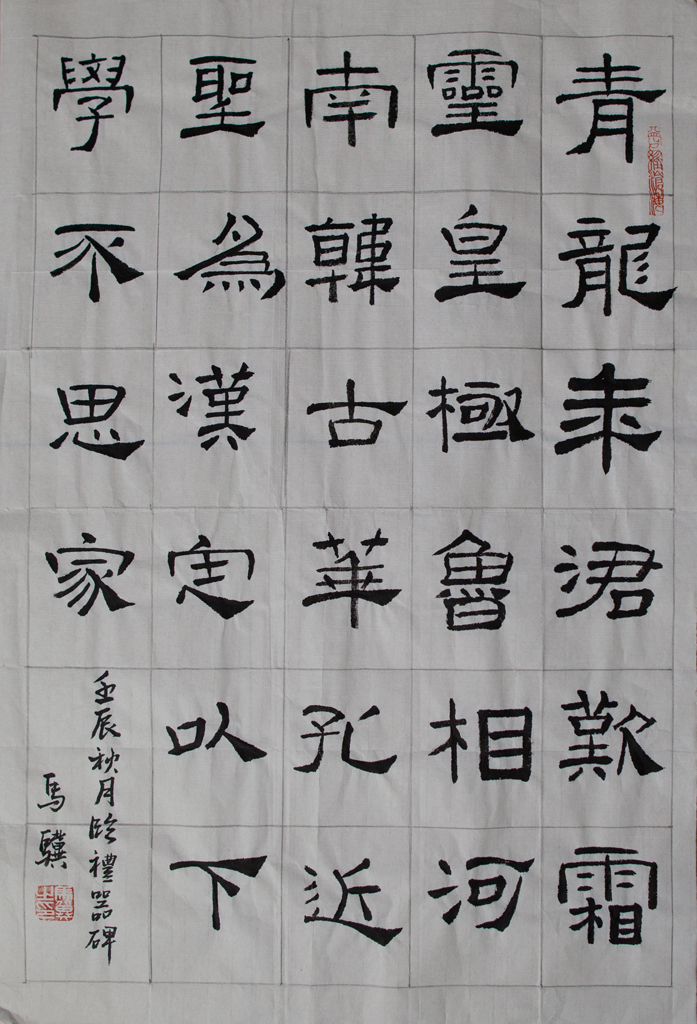 青龍涒歎霜
靈皇極魯相河
南韓古華孔近
聖爲漢定以下
學不思家
壬辰秋月臨禮器碑
馬驥